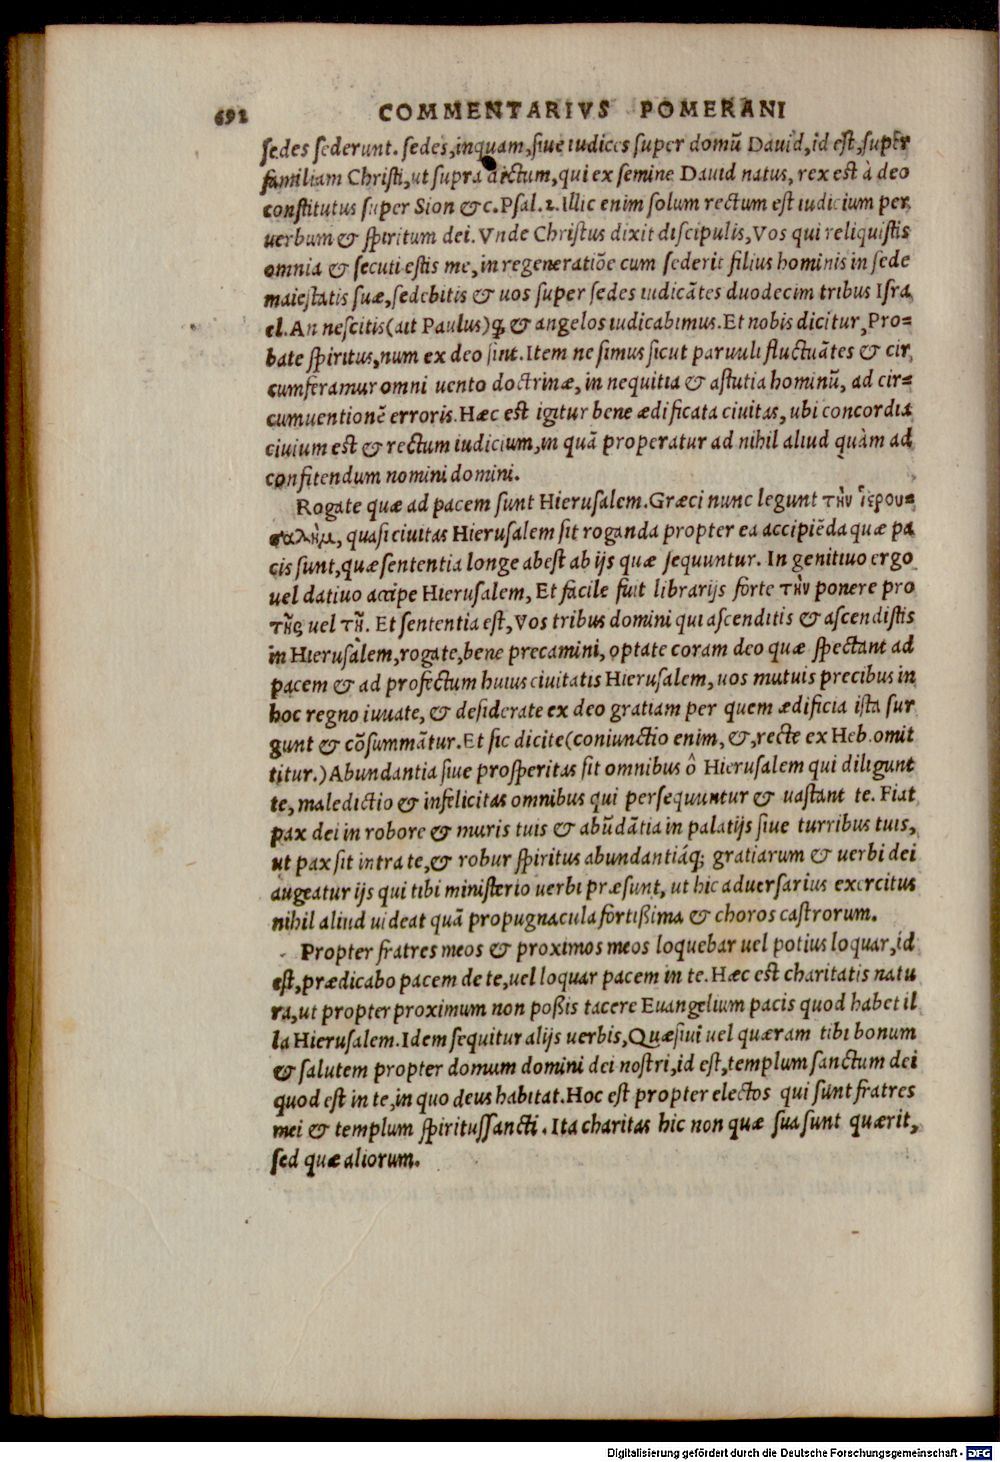 692 COMMENTARIVS POMERANI
sedes sederunt. sedes, inquam, siue iudices super domũ Dauid, id est, super
familiam Christi, ut supra dictum, qui ex semine Dauid natus, rex est à deo
constitutus super Sion & c. Psal. 2. illic enim solum rectum est iudicium per
uerbum & spiritum dei. Vnde Christus dixit discipulis, Vos qui reliquistis
omnia & secuti estis me, in regeneratiõe cum sederit filius hominis in sede
maiestatis suæ, sedebitis & uos super sedes iudicãtes duodecim tribus Isra
el. An nescitis (ait Paulus) ꝙ & angelos iudicabimus. Et nobis dicitur, Pro=
bate spiritus, num ex deo sint. Item ne simus sicut paruuli fluctuãtes & cir
cumferamur omni uento doctrinæ, in nequitia & astutia hominũ, ad cir=
cumuentionẽ erroris. Hæc est igitur bene ædificata ciuitas, ubi concordia
ciuium est & rectum iudicium, in quã properatur ad nihil aliud quàm ad
confitendum nomini domini.
Rogate quæ ad pacem sunt Hierusalem. Græci nunc legunt τὴν ἱερου=
σαλὴμ, quasi ciuitas Hierusalem sit roganda propter ea accipiẽda quæ pa
cis sunt, quæ sententia longe abest ab ijs quæ sequuntur. In genitiuo ergo
uel datiuo accipe Hierusalem, Et facile fuit librarijs forte τὴν ponere pro
τῆς uel τῇ. Et sententia est, Vos tribus domini qui ascenditis & ascendistis
in Hierusalem, rogate, bene precamini, optate coram deo quæ spectant ad
pacem & ad profectum huius ciuitatis Hierusalem, uos mutuis precibus in
hoc regno iuuate, & desiderate ex deo gratiam per quem ædificia ista sur
gunt & cõsummãtur. Et sic dicite (coniunctio enim, &, recte ex Heb. omit
titur.) Abundantia siue prosperitas sit omnibus ô Hierusalem qui diligunt
te, maledictio & infelicitas omnibus qui persequuntur & uastant te. Fiat
pax dei in robore & muris tuis & abũdãtia in palatijs siue turribus tuis,
ut pax sit intra te, & robur spiritus abundantiáq; gratiarum & uerbi dei
augeatur ijs qui tibi ministerio uerbi præsunt, ut hic aduersarius exercitus
nihil aliud uideat quã propugnacula fortißima & choros castrorum.
Propter fratres meos & proximos meos loquebar uel potius loquar, id
est, prædicabo pacem de te, uel loquar pacem in te. Hæc est charitatis natu
ra, ut propter proximum non poßis tacere Euangelium pacis quod habet il
la Hierusalem. Idem sequitur alijs uerbis, Quæsiui uel quæram tibi bonum
& salutem propter domum domini dei nostri, id est, templum sanctum dei
quod est in te, in quo deus habitat. Hoc est propter electos qui sunt fratres
mei & templum spiritussancti. Ita charitas hic non quæ sua sunt quærit,
sed quæ aliorum.
Digitalisierung gefördert durch die Deutsche Forschungsgemeinschaft - DFG